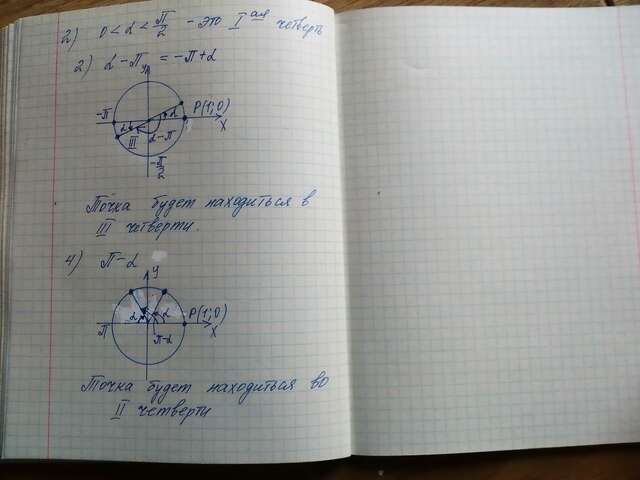 2) 0 < α < π/2 - это I ая четверть
2) α - π = -π + α
y
-π
α
α
P(1;0)
x
III
α-π
-π/2
Точка будет находиться в
III четверти.
4) π-α
y
π
α
α
P(1;0)
x
π-α
Точка будет находиться во
II четверти